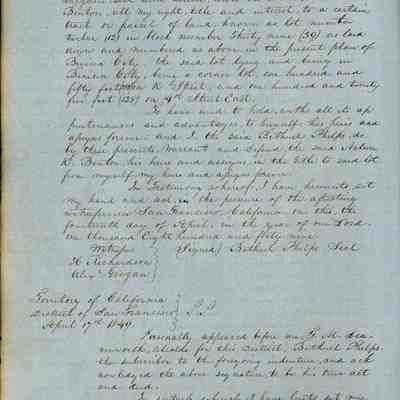 Benton, all my right title and interest to a certain
tract or parcel of land, known as lot number
twelve (12) in block number thirty nine (39) as laid
down and numbered as above in the present plan of
Benicia City, the said lot lying and being in
Benicia City, being a corner lot, one hundred and
fifty feet on K Street, and one hundred and twenty
five feet (125) on 4th Street East.
To have and to hold, with all its ap
purtenances and advantages, to himself, his heirs and
assigns forever. And I the said Bethuel Phelps, do
by these presents, warrant and defend, the said Nelson
K. Benton, his heirs and assigns, in the title to said lot
from myself, my heirs and assigns forever.
In Testimony whereof, I have hereunto set
my hand and seal, in the presence of the attesting
witnesses, in San Francisco, California on this the
fourteenth day of April, in the year of our Lord
one thousand Eight hundred and forty nine.
Witness (Signed) Bethuel Phelps Seal
H Richardson
Alexr Grogan
Territory of California
District of San Francisco S.S.
April 17th 1849
Personally appeared before me, T. M. Lea-
venworth, Alcalde for this District, Bethuel Phelps,
the subscriber to the foregoing indenture, and ack
nowledged the above signature, to be his true act
and deed.
In witness whereof I have hereto set my